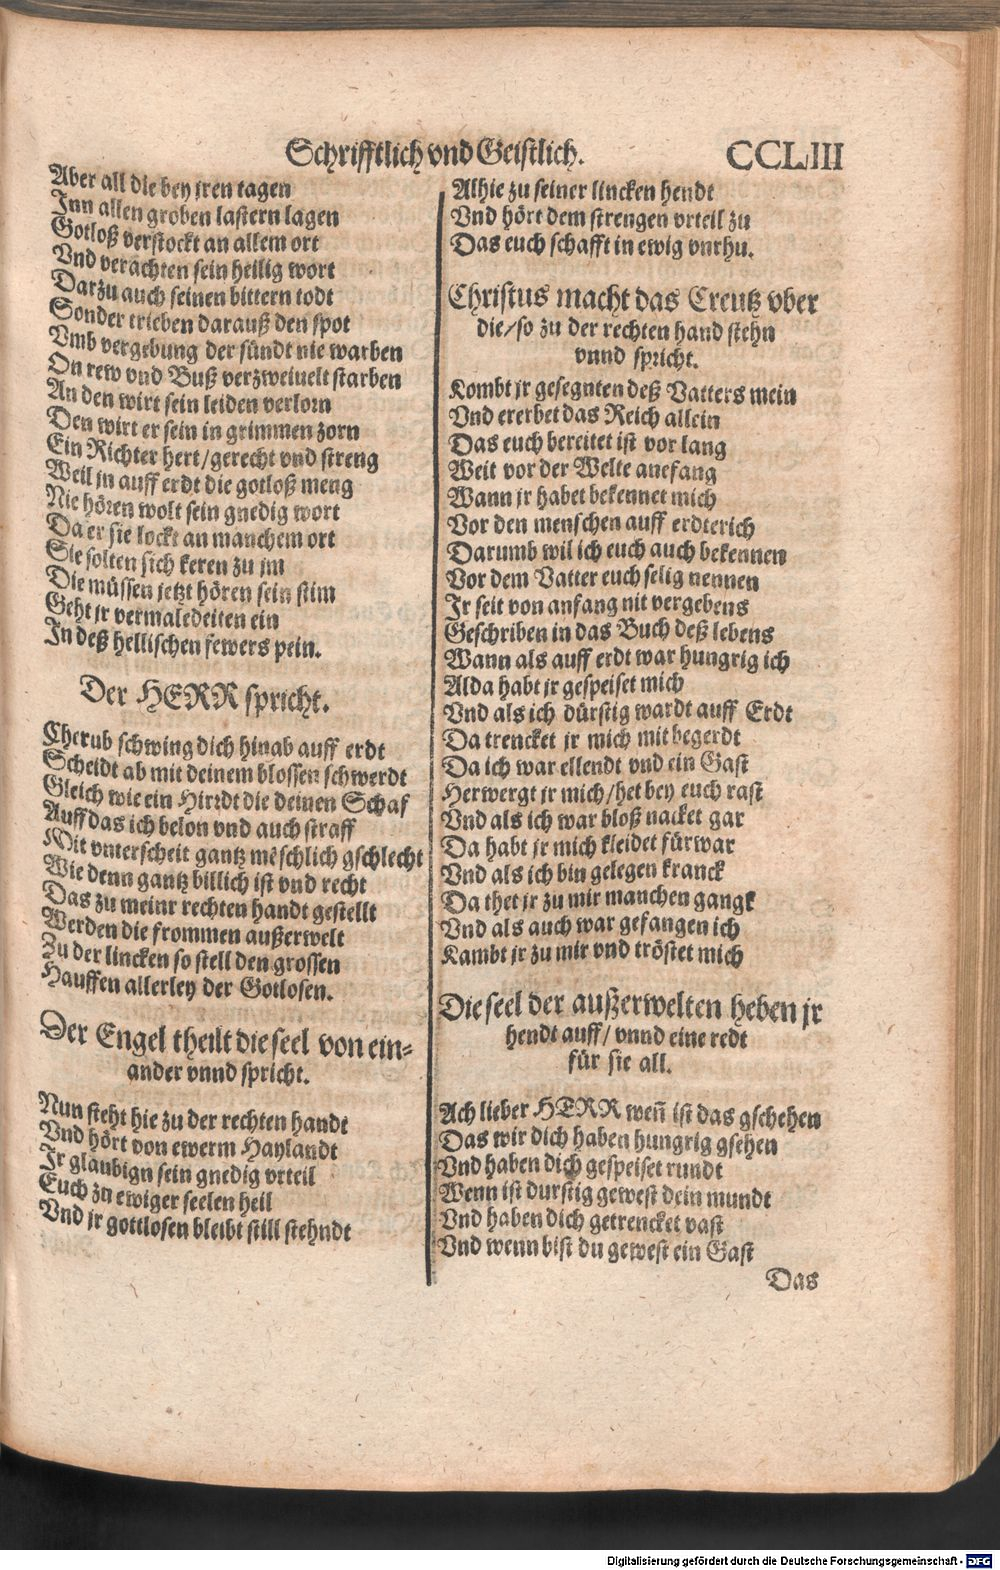 Schrifftlich vnd Geistlich. CCLIII
Aber all die bey jren tagen
Inn allen groben lastern lagen
Gotloß verstockt an allem ort
Vnd verachten sein heilig wort
Darzu auch seinen bittern todt
Sonder trieben darauß den spot
Vmb vergebung der sündt nie warben
On rew vnd Buß verzweiuelt starben
An den wirt sein leiden verlorn
Den wirt er sein in grimmen zorn
Ein Richter hert/gerecht vnd streng
Weil jn auff erdt die gotloß meng
Nie hören wolt sein gnedig wort
Da er sie lockt an manchem ort
Sie solten sich keren zu jm
Die müssen jetzt hören sein stim
Geht jr vermaledeiten ein
In deß hellischen fewers pein.
Der HERR spricht.
Cherub schwing dich hinab auff erdt
Scheidt ab mit deinem blossen schwerdt
Gleich wie ein Hirrdt die deinen Schaf
Auff das ich belon vnd auch straff
Mit vnterscheit gantz mēschlich gschlecht
Wie denn gantz billich ist vnd recht
Das zu meinr rechten handt gestellt
Werden die frommen außerwelt
Zu der lincken so stell den grossen
Hauffen allerley der Gotlosen.
Der Engel theilt die seel von ein-
ander vnnd spricht.
Nun steht hie zu der rechten handt
Vnd hört von ewerm Haylandt
Ir glaubign sein gnedig vrteil
Euch zu ewiger seelen heil
Vnd jr gottlosen bleibt still stehndt
Alhie zu seiner lincken hendt
Vnd hört dem strengen vrteil zu
Das euch schafft in ewig vnrhu.
Christus macht das Creutz vber
die/so zu der rechten hand stehn
vnnd spricht.
Kombt jr gesegnten deß Vatters mein
Vnd ererbet das Reich allein
Das euch bereitet ist vor lang
Weit vor der Welte anefang
Wann jr habet bekennet mich
Vor den menschen auff erdterich
Darumb wil ich euch auch bekennen
Vor dem Vatter euch selig nennen
Ir seit von anfang nit vergebens
Geschriben in das Buch deß lebens
Wann als auff erdt war hungrig ich
Alda habt jr gespeiset mich
Vnd als ich dürstig wardt auff Erdt
Da trencket jr mich mit begerdt
Da ich war ellendt vnd ein Gast
Herwergt jr mich/het bey euch rast
Vnd als ich war bloß nacket gar
Da habt jr mich kleidet fürwar
Vnd als ich bin gelegen kranck
Da thet jr zu mir manchen gangk
Vnd als auch war gefangen ich
Kambt jr zu mir vnd tröstet mich
Die seel der außerwelten heben jr
hendt auff/ vnnd eine redt
für sie all.
Ach lieber HERR weñ ist das gschehen
Das wir dich haben hungrig gsehen
Vnd haben dich gespeiset rundt
Wenn ist durstig gewest dein mundt
Vnd haben dich getrencket vast
Vnd wenn bist du gewest ein Gast
Das
Digitalisierung gefördert durch die Deutsche Forschungsgemeinschaft - DFG